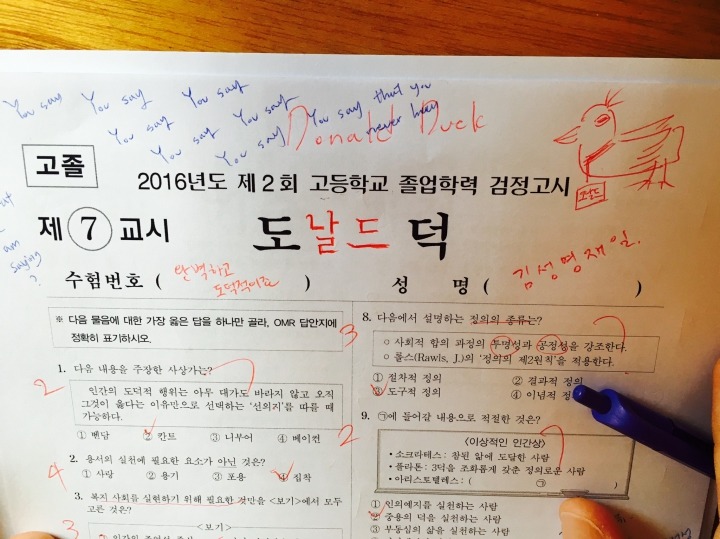 You say You say You say
You say You say You say that you
You say You say never
Donald Duck
고졸
2016년도 제 2 회 고등학교 졸업학력 검정고시
도날드
am
saying
?
제 7 교시
도날드덕
수험번호 ( 완벽하고 도덕적이죠 )
성 명 ( 김성명재일. )
※ 다음 물음에 대한 가장 옳은 답을 하나만 골라, OMR 답안지에
정확히 표기하시오.
1. 다음 내용을 주장한 사상가는?
2
인간의 도덕적 행위는 아무 대가도 바라지 않고 오직
그것이 옳다는 이유만으로 선택하는 '선의지'를 따를 때
가능하다.
① 벤담 ② 칸트 ③ 니부어 ④ 베이컨
2. 용서의 실천에 필요한 요소가 아닌 것은?
4
① 사랑 ② 용기 ③ 포용 ④ 집착
3. 복지 사회를 실현하기 위해 필요한 것만을 <보기>에서 모두
고른 것은?
3
<보기>
3
8. 다음에서 설명하는 정의의 종류는?
○ 사회적 합의 과정의 투명성과 공정성을 강조한다.
○ 롤스(Rawls, J.)의 '정의의 제2원칙'을 적용한다.
① 절차적 정의 ② 결과적 정의
③ 도구적 정의 ④ 이념적
2
9. ㉠에 들어갈 내용으로 적절한 것은?
<이상적인 인간상>
• 소크라테스: 참된 앎에 도달한 사람
• 플라톤: 3덕을 조화롭게 갖춘 정의로운 사람
• 아리스토텔레스: ( ㉠
① 인의예지를 실천하는 사람
② 중용의 덕을 실천하는 사람
③ 부동심의 삶을 실천하는 사람